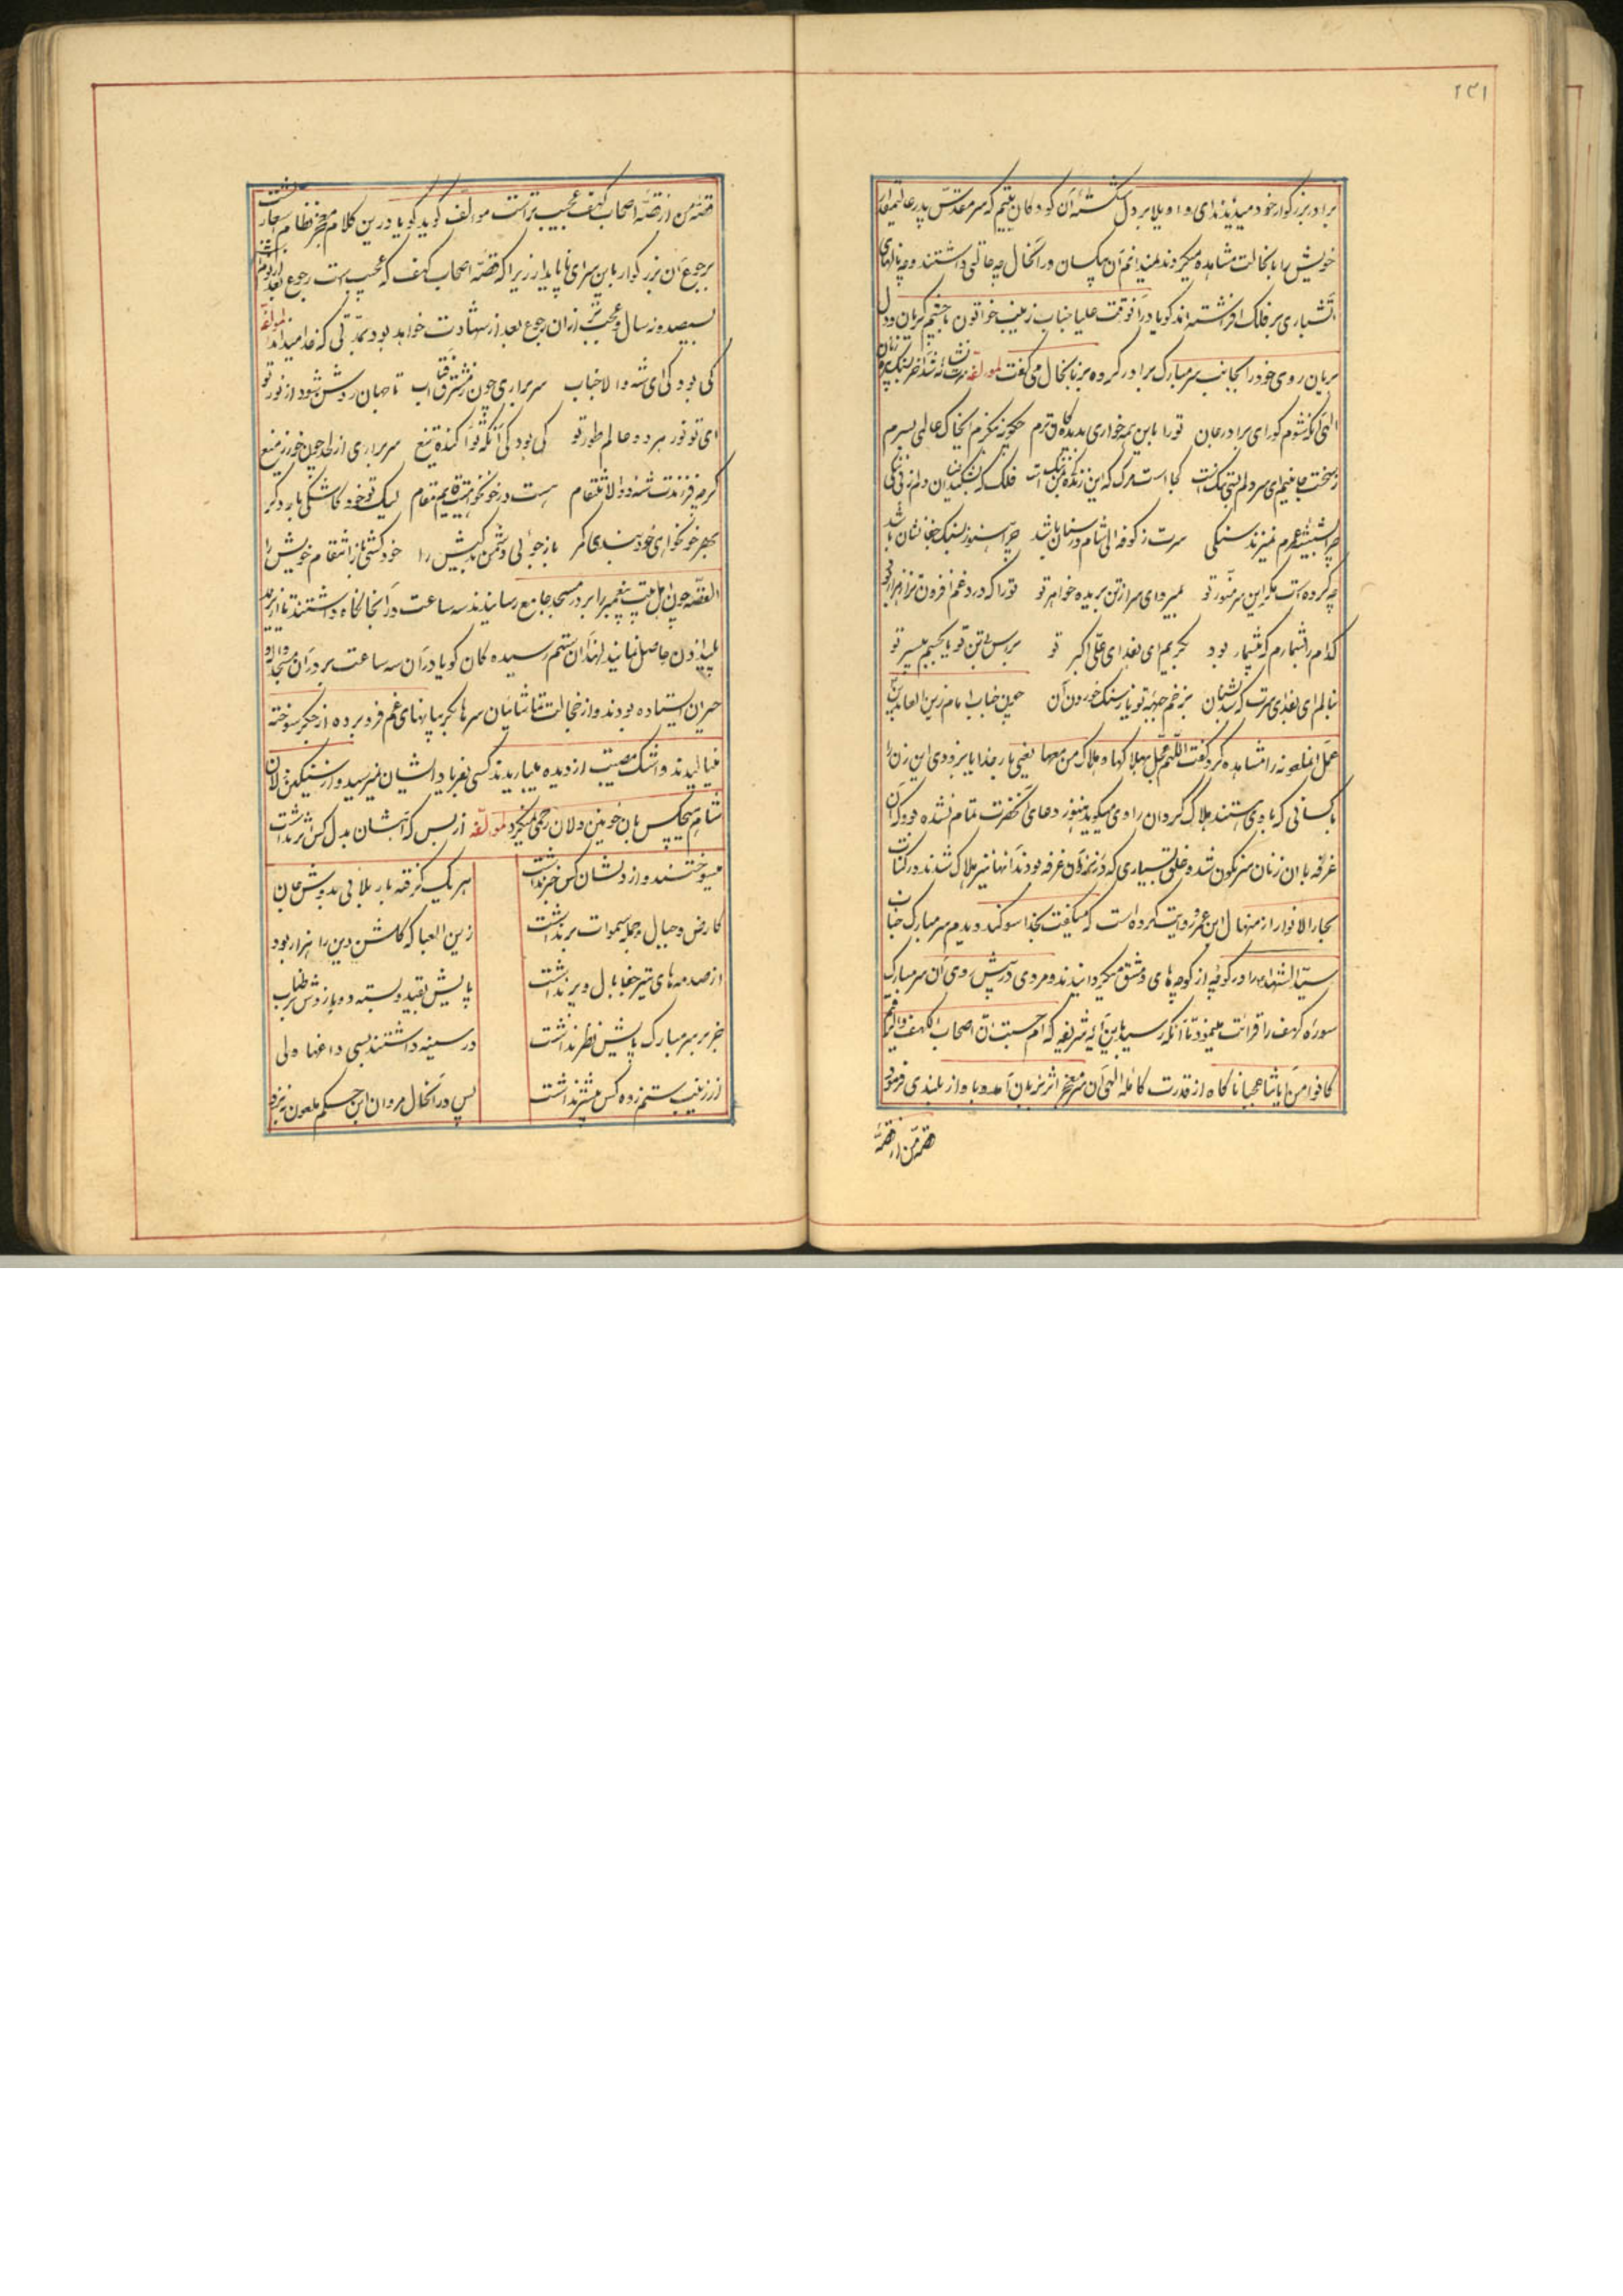 ۲۳۱
برادر بزرگوار خود میدیدند ای واویلا بر دل شکسته آن کودکان یتیم که سر مقدس پدر عالیمقدار
خویش را باینحالت مشاهده میکردند نمیدانم آن بیکسان در آنحال چه حالتی داشتند و چه نالهای
آتشباری بر فلک افراشته‌اند گویا در آنوقت علیا جناب زینب خواتون با چشم گریان و دل
بریان روی خود را بجانب سر مبارک برادر کرده بزبانحال می گفت لمؤلفه
الهی آنکه شوم کور ای برادر جان تو را باین همه خواری بدیده نگرم چگونه ننگرم بخاک عالمی بسرم
ز سخت جانیم ای سر دلم بتنگ است کجا است مرگ که این زندگی ننگ است فلک که
چرا بشیشه عمرم نمیزند سنگی سرت ز کوفه الی شام در سنان باشد چرا هنوز
چه کرده است مگر این سر منور تو نمیرد ای سر از تن بریده خواهر تو تو را که درد و غم افزون
کدام را شمارم که بیشمار بود بگریم ای بفدای علی اکبر تو
بنالم ای بفدای سرت بزخم جبهه تو یا ز سنگ خوردن آن چون جناب امام زین العابدین
عمل آنملعونه را مشاهده کرد گفت اللهم عجل بهلاکها و هلاک من معها یعنی بار خدایا بزودی این زن را
با کسانی که با وی هستند هلاک گردان راوی میگوید هنوز دعای آنحضرت تمام نشده بود که آن
غرفه با آن زنان سرنگون شده خلق بسیاری که در زیر آن غرفه بودند آنها نیز هلاک شدند و در کتاب
بحار الانوار از منهال ابن عمرو روایت کرده است که میگفت بخدا سوگند دیدم سر مبارک جناب
سید الشهدا را در کوچه از کوچه های دمشق میگردانیدند و مردی در پیش روی آن سر مبارک
سوره کهف را قرائت مینمود تا آنکه رسید باین آیه شریفه که ام حسبت ان اصحاب الکهف والرقیم
کانوا من آیاتنا عجبا ناگاه از قدرت کامله الهی آن سر معجز اثر بزبان آمد و باواز بلندی فرمود
قصه من از قصه
قصه من از قصه اصحاب کهف عجیب تر است مؤلف گوید گویا درین کلام معجز نظام
برجوع آن بزرگوار باین سرای ناپایدار زیرا که قصه اصحاب کهف که عجیب است رجوع بعد از
سیصد و نه سال و عجیب تر از آن رجوع بعد از شهادت خواهد بود بمدتی که خدا میداند لمؤلفه
کی بود کی ای شه والا جناب سر براری چون ز مشرق آفتاب تا جهان روشن شود از نور تو
ای تو نور هر دو عالم طور تو کی بود کی آنکه تو آکنده تیغ سر براری از لحد
گرچه فرزندت شه والا مقام هست در خونخواهیت قایم مقام لیک تو خود کاشکی بار دگر
بهر خونخواهی خود بازجوئی دشمن بدکیش را خود کشی باز انتقام خویش را
القصه چون اهل بیت پیغمبر را بر در مسجد جامع رسانیدند سه ساعت در آنجا نگاه داشتند تا از یزید
پلید اذن حاصل نمایند لهذا آن ستم رسیده گان گویا در آن سه ساعت بر در آن مسجد
حیران ایستاده بودند و از خجالت تماشائیان سرها بگریبانهای غم فرو برده از جگر سوخته
مینالیدند و اشک مصیبت از دیده میباریدند کسی بفریاد ایشان نمیرسید و از سنگین دلان
شام هیچکس بان خونین دلان رحمی نمیکرد لمؤلفه از بس که آهشان بدل کس اثر نداشت
میسوختند و از دلشان کس خبر نداشت هر یک گرفته بار بلائی بدوش جان
کارض و جبال و جمله سموات بر نداشت زین العبا که گلشن دین را هزار بود
از صدمه های تیر جفا بال و پر نداشت پایش بقید و بسته دو بازوش بر طناب
جز بر سر مبارک بابش نظر نداشت در سینه داشتند بسی داغها ولی
از زینب ستم زده کس بیشتر نداشت پس در آنحال مروان ابن حکم ملعون